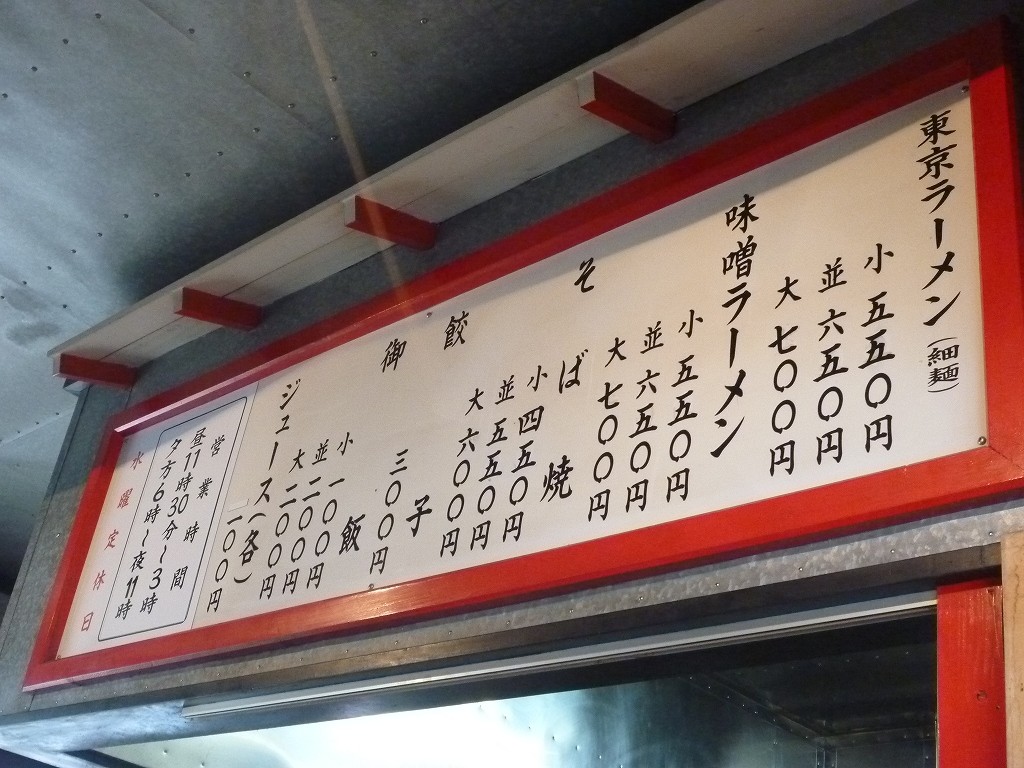 東京ラーメン(細麺)
小 五五〇円
並 六五〇円
大 七〇〇円
味噌ラーメン
小 五五〇円
並 六五〇円
大 七〇〇円
そば焼
小 四五〇円
並 五五〇円
大 六〇〇円
餃子
三〇〇円
御飯
小 一〇〇円
並 二〇〇円
大 二〇〇円
ジュース(各)
一〇〇円
営業時間
昼11時30分〜3時
夕方6時〜夜11時
水曜定休日